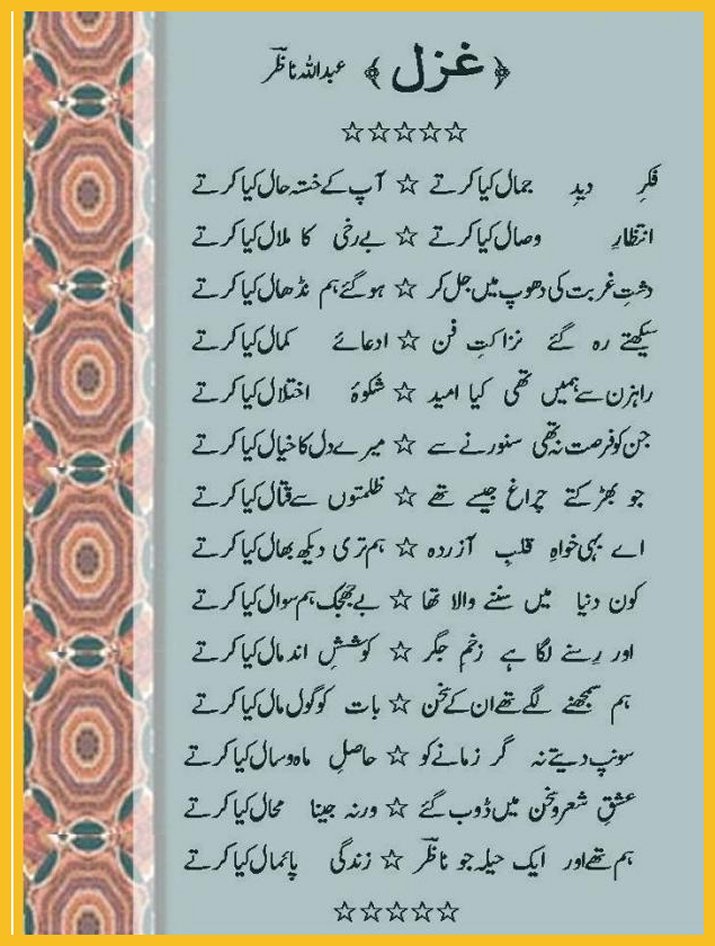 ﴿غزل﴾ عبداللہ ناظرؔ
☆☆☆☆☆
فکرِ دیدِ جمال کیا کرتے ☆ آپ کے خستہ حال کیا کرتے
انتظارِ وصال کیا کرتے ☆ بے رخی کا ملال کیا کرتے
دشتِ غربت کی دھوپ میں جل کر ☆ ہو گئے ہم نڈھال کیا کرتے
سیکھتے رہ گئے نزاکتِ فن ☆ ادعائے کمال کیا کرتے
راہزن سے ہمیں تھی کیا امید ☆ شکوۂ اختلال کیا کرتے
جن کو فرصت نہ تھی سنورنے سے ☆ میرے دل کا خیال کیا کرتے
جو بھڑکتے چراغ جیسے تھے ☆ ظلمتوں سے قتال کیا کرتے
اے بہی خواہِ قلبِ آزردہ ☆ ہم تری دیکھ بھال کیا کرتے
کون دنیا میں سننے والا تھا ☆ بے جھجک ہم سوال کیا کرتے
اور رِسنے لگا ہے زخمِ جگر ☆ کوششِ اندمال کیا کرتے
ہم سمجھنے لگے تھے ان کے سخن ☆ بات کو گول مال کیا کرتے
سونپ دیتے نہ گر زمانے کو ☆ حاصلِ ماہ و سال کیا کرتے
عشقِ شعر و سخن میں ڈوب گئے ☆ ورنہ جینا محال کیا کرتے
ہم تھے اور ایک حیلہ جو ناظرؔ ☆ زندگی پائمال کیا کرتے
☆☆☆☆☆